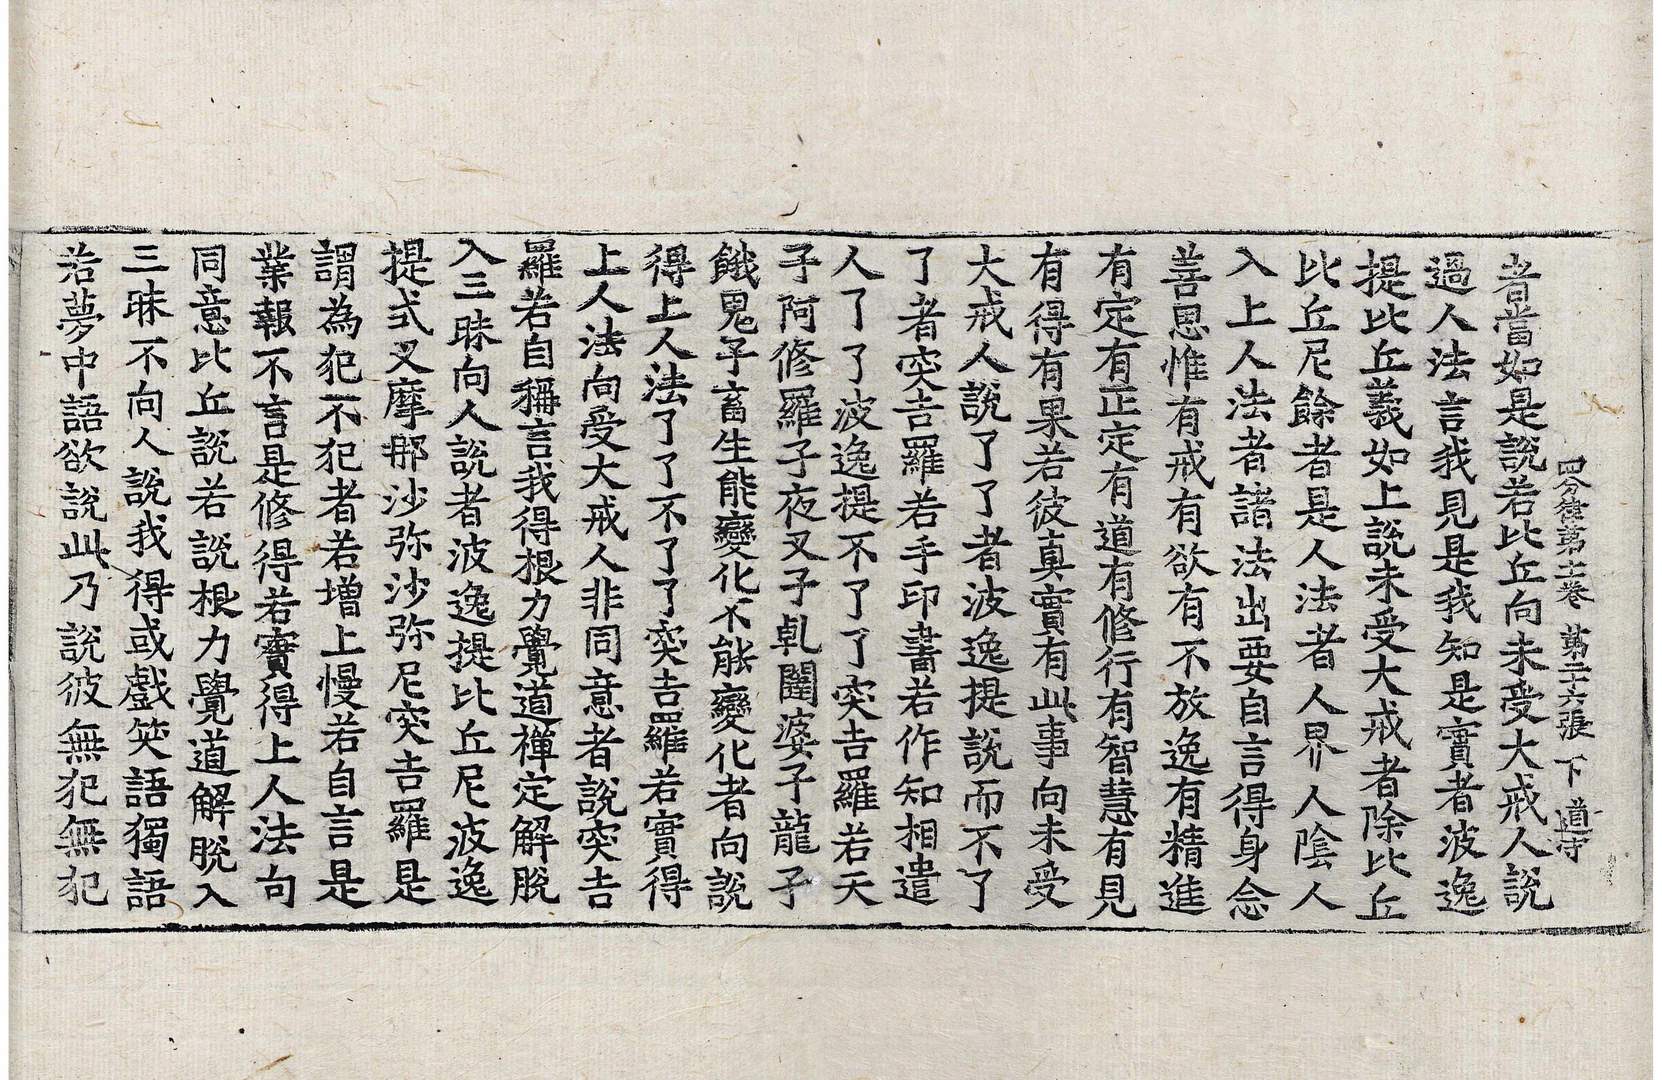 四分律第十一卷 第二十六張 下 道守
者當如是說若比丘向未受大戒人說
過人法言我見是我知是實者波逸
提比丘義如上說未受大戒者除比丘
比丘尼餘者是人法者人界人陰人
入上人法者諸法出要自言得身念
善思惟有戒有欲有不放逸有精進
有定有正定有道有修行有智慧有見
有得有果若彼真實有此事向未受
大戒人說了了者波逸提說而不了
了者突吉羅若手印書若作知相遣
人了了了波逸提不了了突吉羅若天
子阿修羅子夜叉子乹闥婆子龍子
餓鬼子畜生能變化不能變化者向說
得上人法了了不了了突吉羅若實得
上人法向受大戒人非同意者說突吉
羅若自稱言我得根力覺道禪定解脫
入三昧向人說者波逸提比丘尼波逸
提式叉摩那沙弥沙弥尼突吉羅是
謂為犯不犯者若增上慢若自言是
業報不言是修得若實得上人法向
同意比丘說若說根力覺道解脫入
三昧不向人說我得或戲笑語獨語
若夢中語欲說此乃說彼無犯無犯